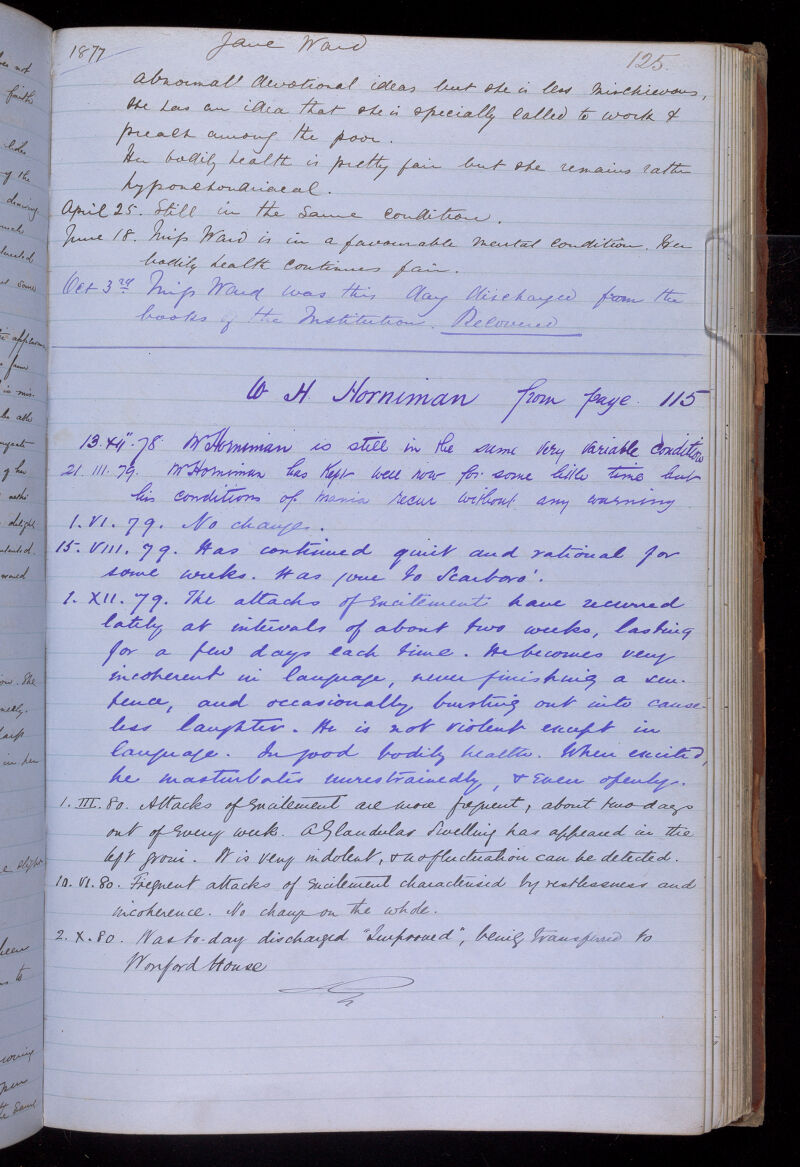 1877 Jane Ward 125.
abnormal devotional ideas but she is less mischievous,
she has an idea that she is specially called to work &
preach among the poor.
Her bodily health is pretty fair but she remains rather
hypochondriacal.
April 25. Still in the same condition.
June 18. Miss Ward is in a favourable mental condition. Her
bodily health continues fair.
Oct 3rd Miss Ward was this day discharged from the
books of the Institution. Recovered
W H Horniman from page 115
13. XII. 78. Mr Horniman is still in the same very variable condition
21. III. 79. Mr Horniman has kept well now for some little time but
his conditions of mania recur without any warning
1. VI. 79. No change.
15. VIII. 79. Has continued quiet and rational for
some weeks. Has gone to Scarboro'.
1. XII. 79. The attacks of excitement have recurred
lately at intervals of about two weeks, lasting
for a few days each time. He becomes very
incoherent in language, never finishing a sen-
tence, and occasionally bursting out into cause-
less laughter. He is not violent except in
language. In good bodily health. When excited,
he masturbates unrestrainedly, & even openly.
1. III. 80. Attacks of excitement are more frequent, about two days
out of every week. A Glandular Swelling has appeared in the
left groin. It is very indolent, & no fluctuation can be detected.
10. VI. 80. Frequent attacks of excitement characterised by restlessness and
incoherence. No change on the whole.
2. X. 80. Was to-day discharged "Improved", being transferred to
Wonford House